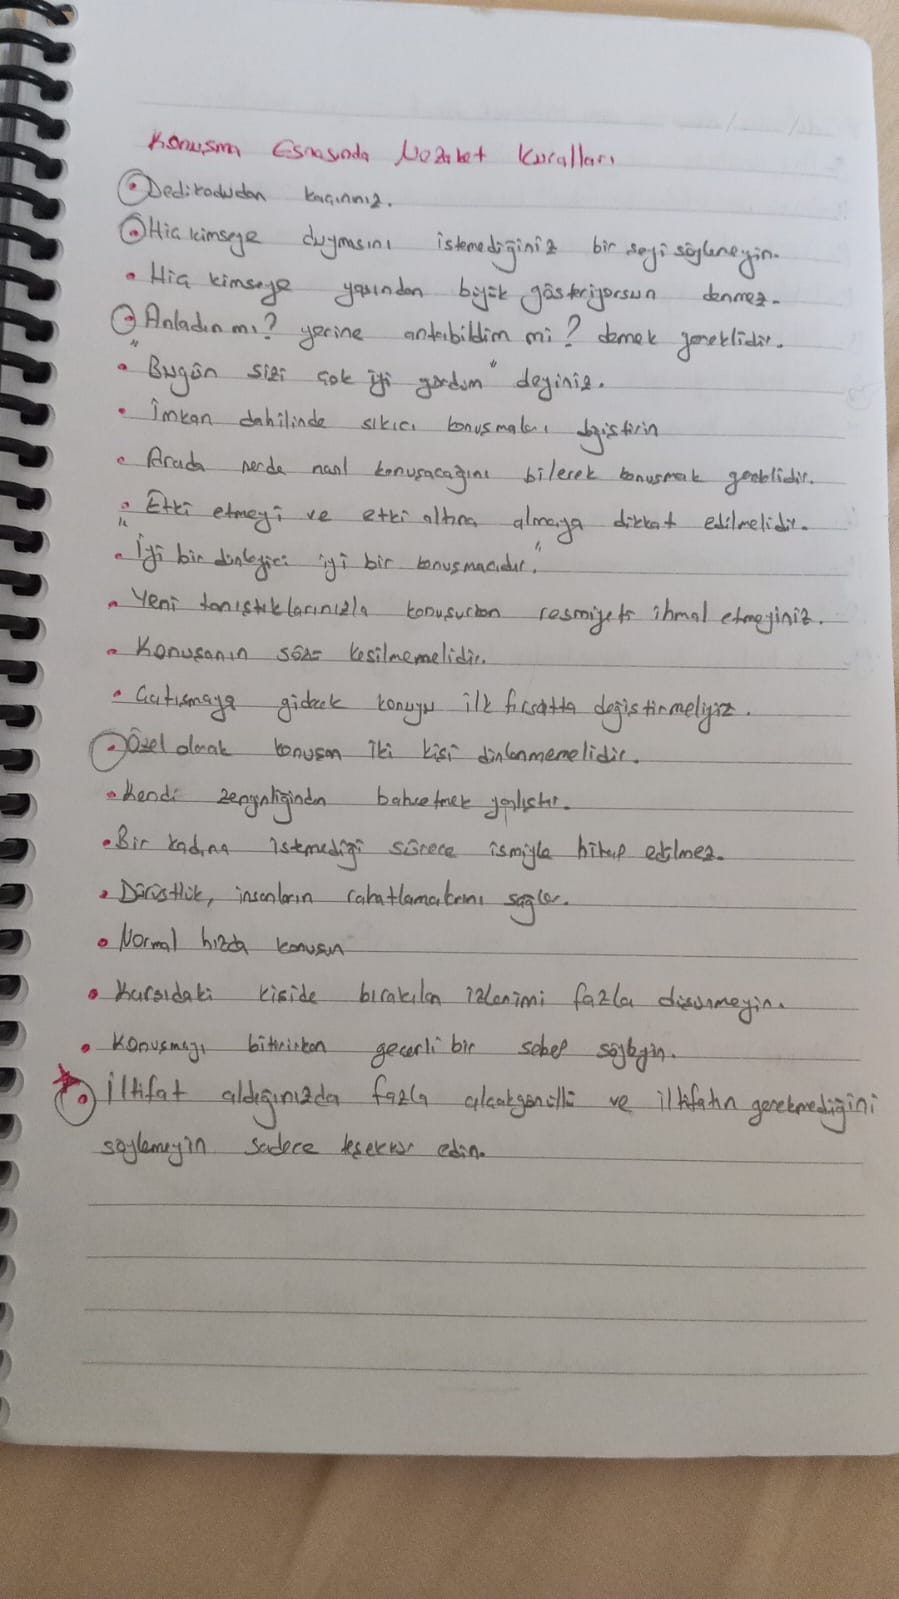 Konuşma Esnasında Nezaket Kuralları
• Dedikodudan kaçınınız.
• Hiç kimseye duymasını istemediğiniz bir şeyi söylemeyin.
• Hiç kimseye yaşından büyük gösteriyorsun denmez.
• Anladın mı? yerine anlatabildim mi? demek gereklidir.
• "Bugün sizi çok iyi gördüm" deyiniz.
• İmkan dahilinde sıkıcı konuşmaları değiştirin
• Arada nerde nasıl konuşacağını bilerek konuşmak gereklidir.
• Etki etmeyi ve etki altına almaya dikkat edilmelidir.
• "İyi bir dinleyici iyi bir konuşmacıdır."
• Yeni tanıştıklarınızla konuşurken resmiyeti ihmal etmeyiniz.
• Konuşanın sözü kesilmemelidir.
• Çatışmaya gidecek konuyu ilk fırsatta değiştirmeliyiz.
• Özel olarak konuşan iki kişi dinlenmemelidir.
• Kendi zenginliğinden bahsetmek yanlıştır.
• Bir kadına istemediği sürece ismiyle hitap edilmez.
• Dürüstlük, insanların rahatlamalarını sağlar.
• Normal hızda konuşun
• Karşıdaki kişide bırakılan izlenimi fazla düşünmeyin.
• Konuşmayı bitirirken geçerli bir sebep söyleyin.
• İltifat aldığınızda fazla alçakgönüllü ve iltifatın gerekmediğini
söylemeyin sadece teşekkür edin.